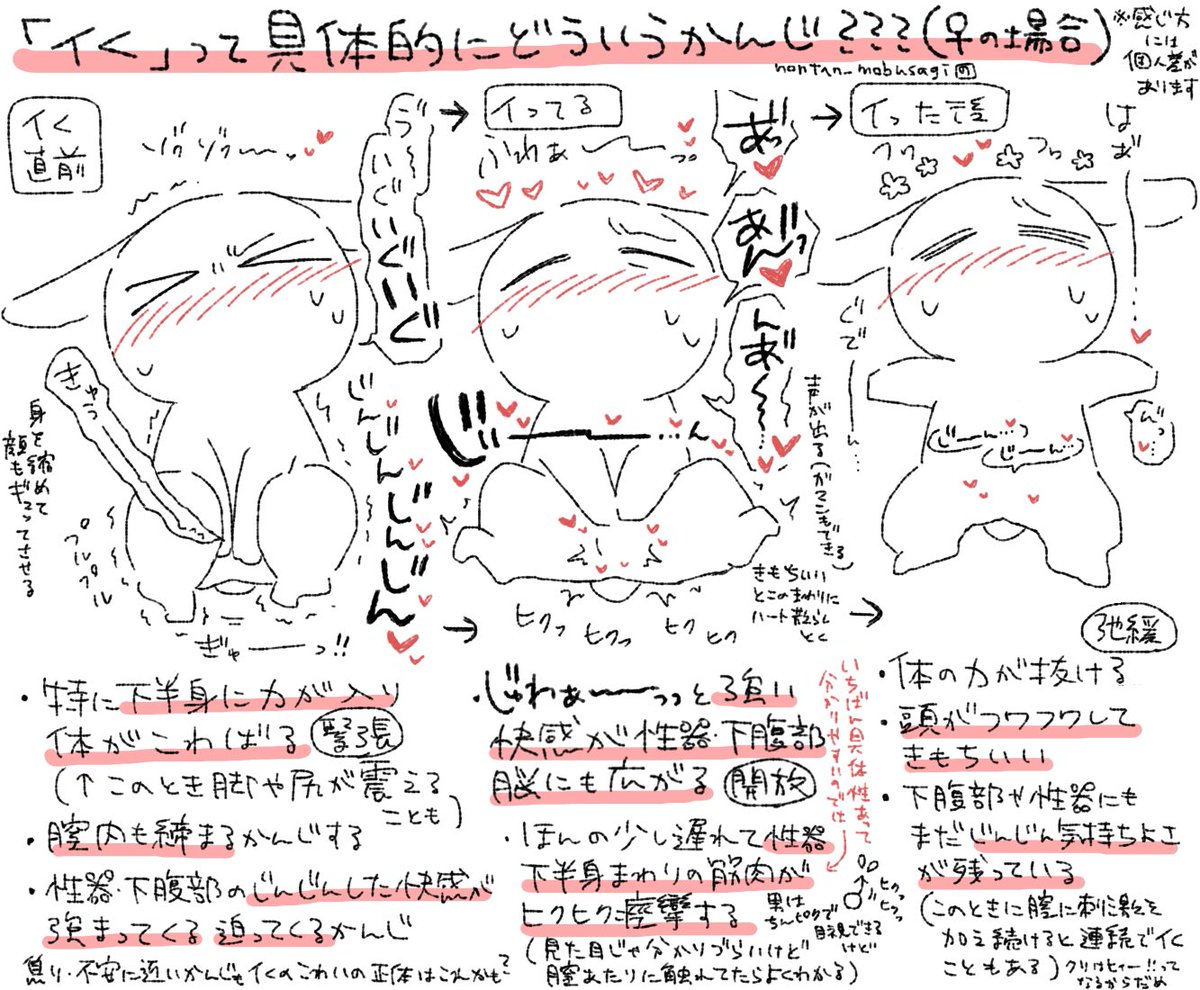 「イく」って具体的にどういうかんじ???(♀の場合)
※感じ方
には
個人差が
あります
nontan_mobusagi
イく
直前
→
イってる
→
イった後
ゾクゾクーっ
ゔ
いぐいぐいぐ
ふわぁ〜っ
あ゙っ
あ゙んっ
んあ゙〜…
フワ
フワ
はぁ…
ぐでー…
きゅっ
身を縮めて
顔もギュってさせる
プルプル
ぎゅーーっ!!
じんじんじんじんじん
じーーー…ん
声が出る(がマンもできる)
きもちいい
とこのまわりに
ハート散らし
とく
ヒクっ
ヒクっ
ヒク
ヒク
じーん…っ
じーん…
んっ
→
→
弛緩
・特に下半身に力が入り
体がこわばる 緊張
(↑このとき脚や尻が震える
ことも)
・膣内も締まるかんじする
・性器・下腹部のじんじんした快感が
強まってくる 迫ってくるかんじ
焦り・不安に近いかんじでイくのこわいの正体はこれかも?
・じゅわぁーーっっと強い
快感が性器・下腹部
脳にも広がる 開放
・ほんの少し遅れて性器
下半身まわりの筋肉が
ヒクヒク痙攣する
(見た目じゃ分かりづらいけど
膣あたりに触れてたらよくわかる)
いちばん具体性あって
分かりやすいのでは
男は
ちんピクで
目視できる
けど
ヒクっ
ヒクっ
・体の力が抜ける
・頭がフワフワして
きもちいい
・下腹部や性器にも
まだじんじん気持ちよさ
が残っている
(このときに膣に刺激を
加え続けると連続でイく
こともある)
クリはヒィー!!って
なるからだめ